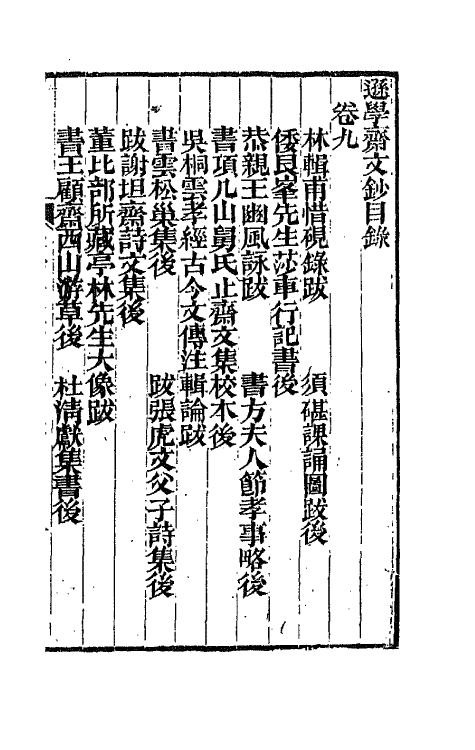 遜學齋文鈔目錄
卷九
林輯甫惜硯錄跋　須磋課誦圖跋後
倭艮峯先生莎車行記書後
恭親王豳風詠跋　書方夫人節孝事略後
書項几山舅氏止齋文集校本後
吳桐雲孝經古今文傳注輯論跋
書雲松巢集後　跋張虎文父子詩集後
跋謝坦齋詩文集後
董比部所藏亭林先生大像跋
書王顧齋西山游草後　杜清獻集書後